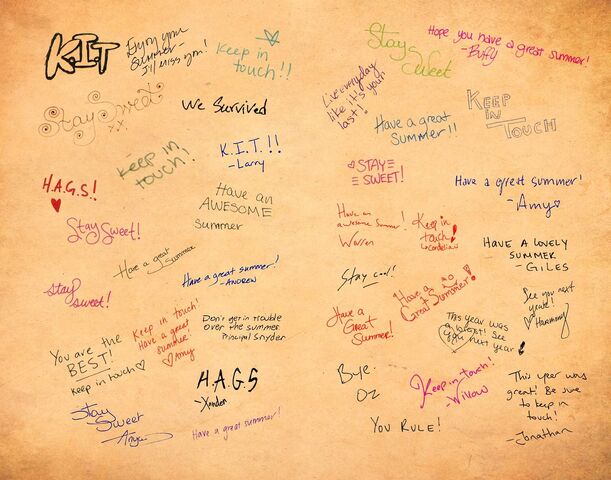 K.I.T
Enjoy you
Summer -
I'll miss you!
Keep in
touch!!
Stay Sweet
xx
We Survived
Keep in
touch!
K.I.T.!!
-Larry
H.A.G.S!
Have an
AWESOME
summer
Stay Sweet!
Have a great summer
Have a great summer!
-ANDREW
stay
sweet!
Keep in touch!
Have a great
summer!
Amy
Don't get in trouble
over the summer
Principal Snyder
You are the
BEST!
keep in touch
H.A.G.S
-Xander
Stay
Sweet
Anya
Have a great summer!
Stay
Sweet
Hope you have a great summer!
-Buffy
Live everyday
like it's your
last!!
KEEP
IN
TOUCH
Have a great
Summer!!
STAY
SWEET!
Have a great summer!
-Amy
Have an
awesome summer!
Warren
Keep in
touch!
Cordelia
HAVE A LOVELY
SUMMER
-GILES
Stay cool!
Have a
Great Summer!
See you next
year!
Harmony
Have a
Great
Summer!
This year was
a blast! See
you next year!
Bye.
Oz
Keep in touch!
-Willow
This year was
great! Be sure
to keep in
touch!
-Jonathan
You RULE!